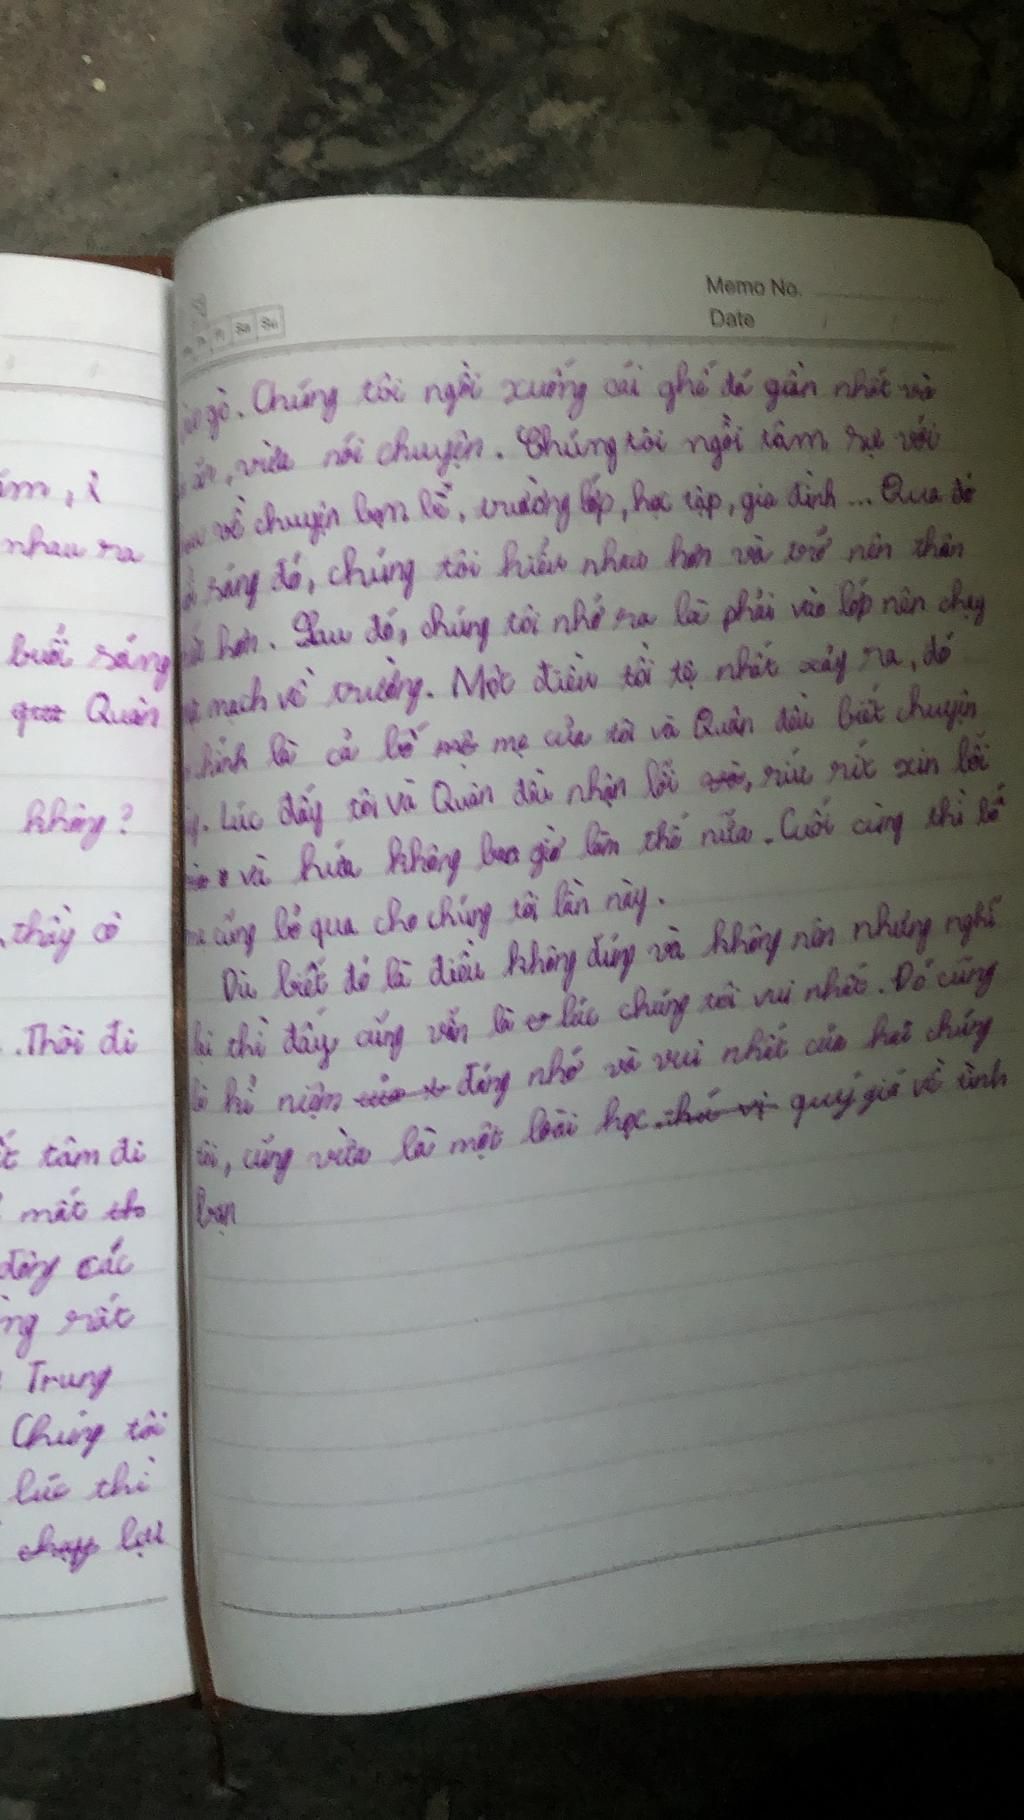 ấm, ì
nhau ra
buổi sáng
Quân
không?
thầy cô
. Thôi đi
tâm đi
mất
đông các
rất
Trung
Chúng tôi
lúc thì
lại
Memo No.
Date
Sa Su
gò. Chúng tôi ngồi xuống cái ghế đá gần nhất và
ăn, vừa nói chuyện. Chúng tôi ngồi tâm sự với
về chuyện bạn bè, trường lớp, học tập, gia đình... Qua đó
sáng đó, chúng tôi hiểu nhau hơn và trở nên thân
hơn. Sau đó, chúng tôi nhớ ra là phải vào lớp nên chạy
mạch về trường. Một điều tồi tệ nhất xảy ra, đó
chính là cả bố mẹ của tôi và Quân đều biết chuyện
. Lúc đấy tôi và Quân đều nhận lỗi, rối rít xin lỗi
và hứa không bao giờ làm thế nữa. Cuối cùng thì bố
mẹ cũng bỏ qua cho chúng tôi lần này.
Dù biết đó là điều không đúng và không nên nhưng nghĩ
lại thì đấy cũng vẫn là lúc chúng tôi vui nhất. Đó cũng
là kỉ niệm đáng nhớ và vui nhất của hai chúng
tôi, cũng vừa là một bài học quý giá về tình
bạn